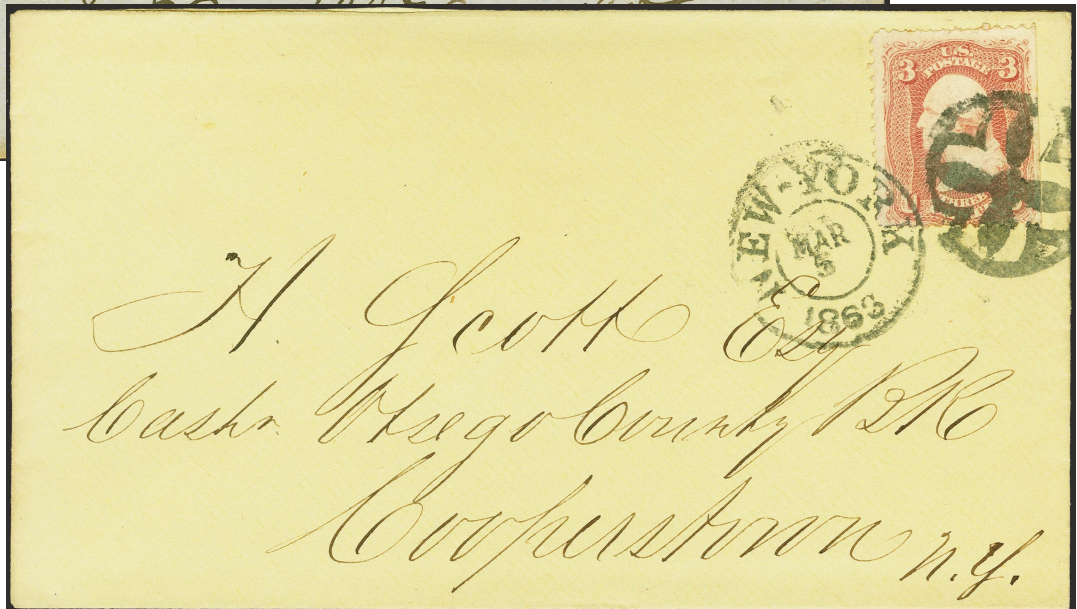 U.S.
POSTAGE
3 3
NEW-YORK
MAR
5
1863
H. Scott Esq
Cashr. Otsego County BK
Cooperstown
N.Y.